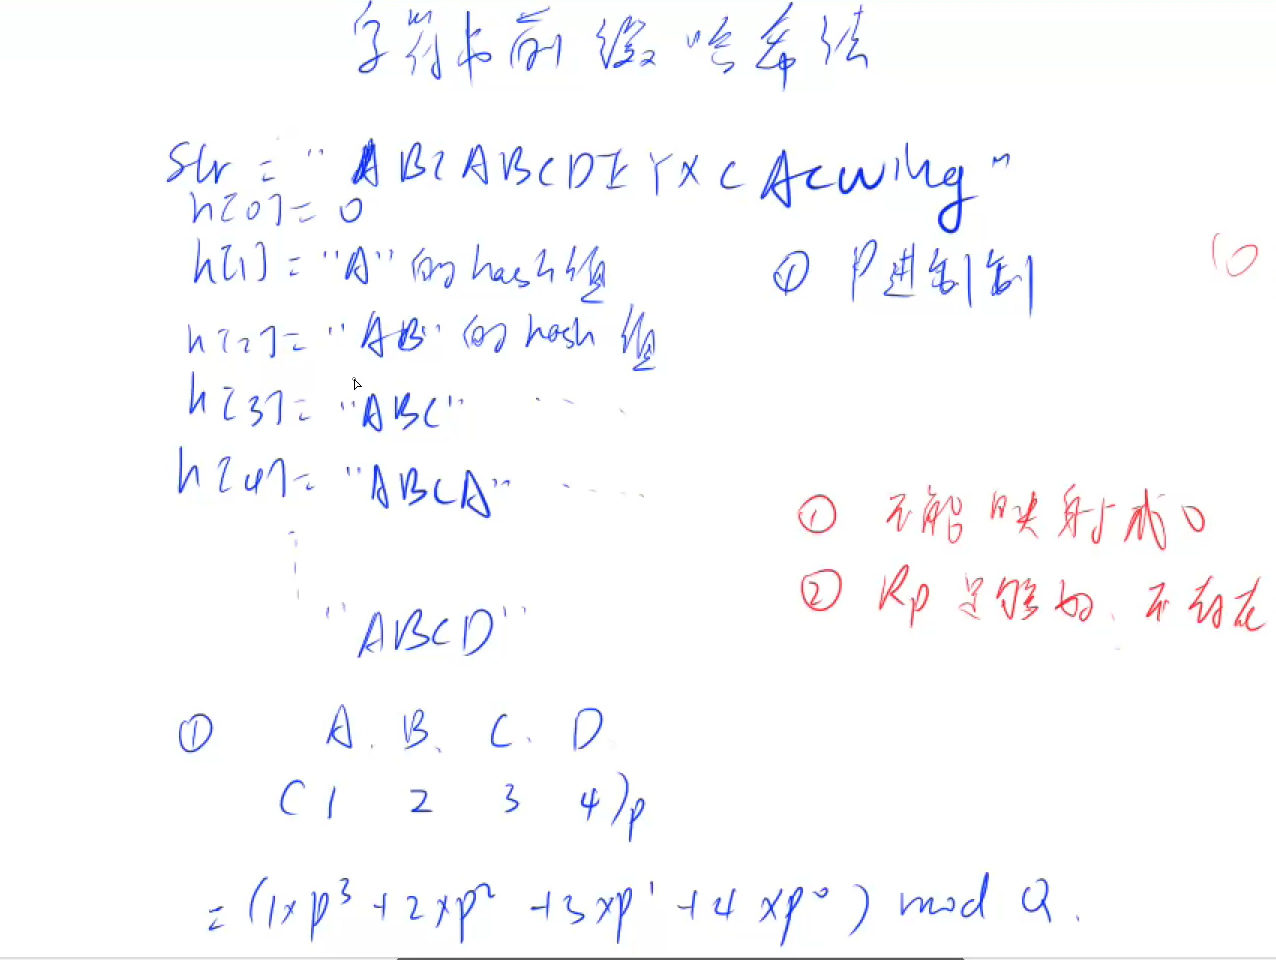 字符串前缀哈希法
Str = "ABCABCDEYXCAcwing"
h[0] = 0
h[1] = "A" 的 hash 值
① P进制制
10
h[2] = "AB" 的 hash 值
h[3] = "ABC" ....
h[4] = "ABCA" ....
① 不能映射成0
② Rp足够好、不存在
"ABCD"
① A. B. C. D
(1 2 3 4)p
= (1×p³ + 2×p² + 3×p¹ + 4×p⁰) mod Q.